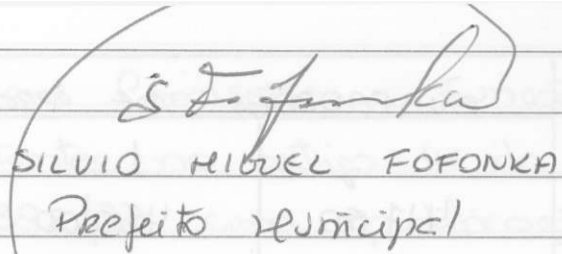 S Fofonka
SILVIO MIGUEL FOFONKA
Prefeito Municipal